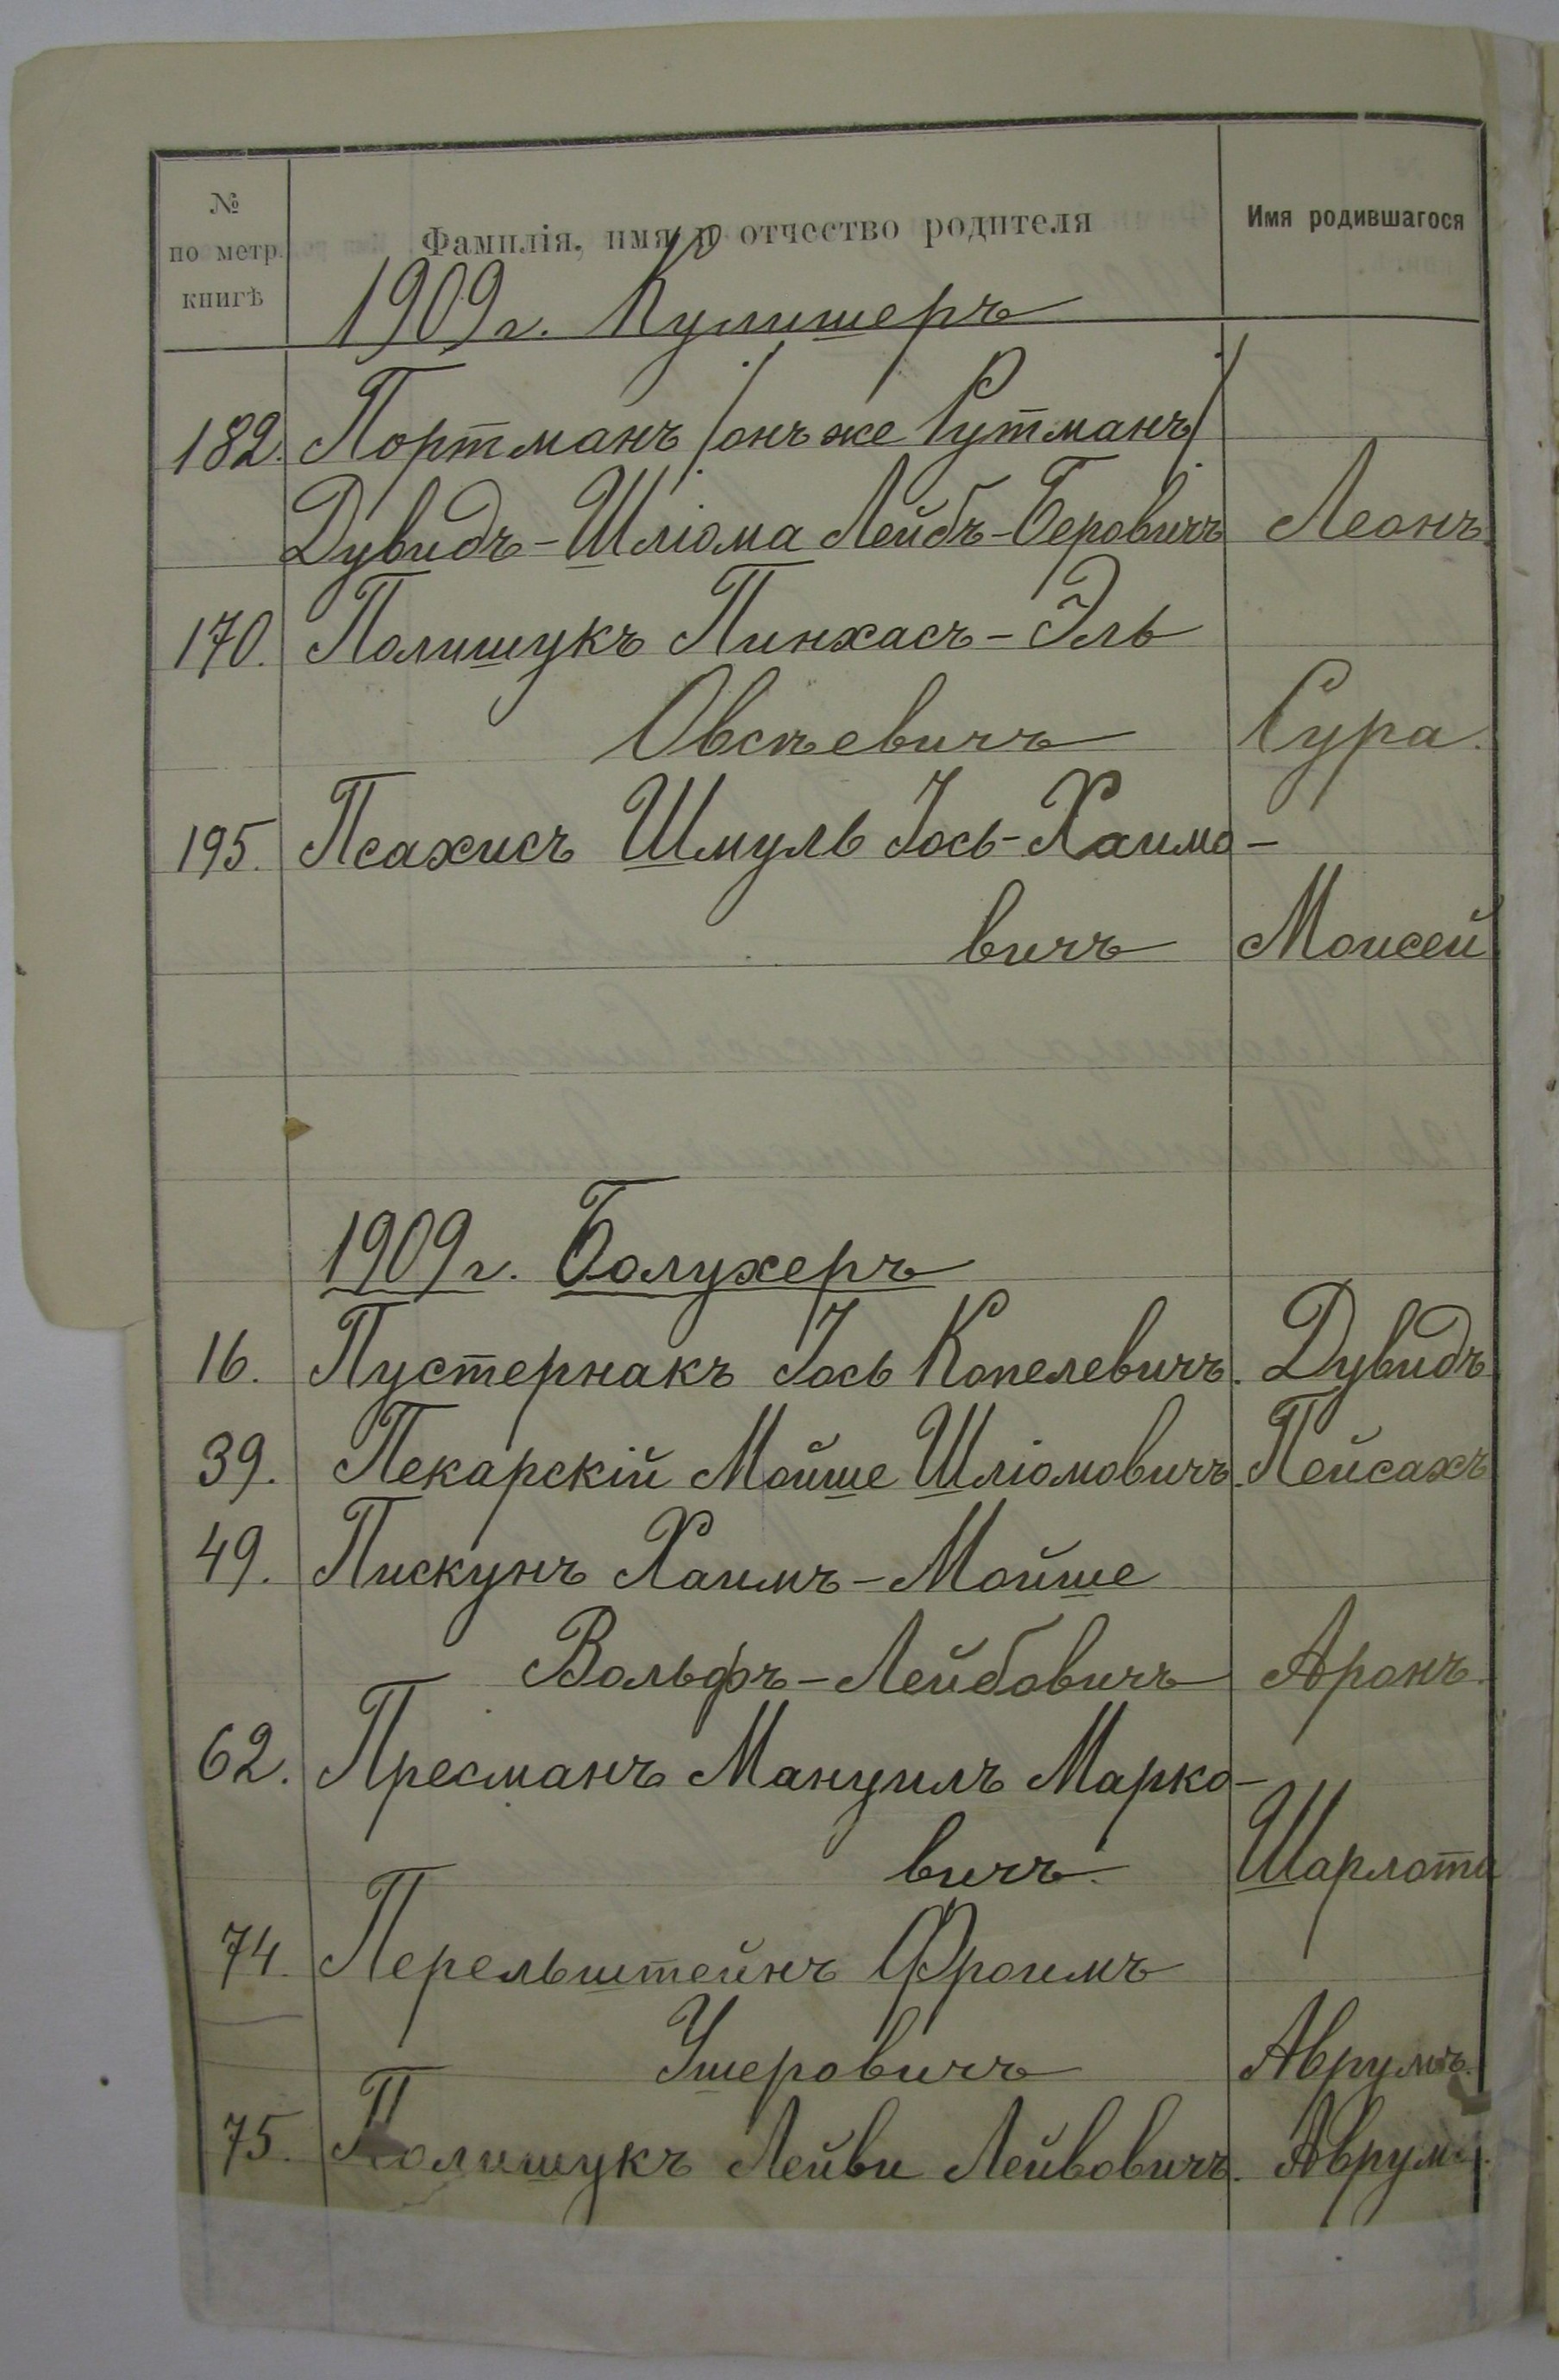 №
по метр.
книгѣ
Фамилія, имя и отчество родителя
Имя родившагося
1909 г. Кулишеръ
182. Портманъ /онъ же Гутманъ/
Дувидъ-Шліома Лейбъ-Беровичъ Леонъ.
170. Полишукъ Пинхасъ-Эль
Овсѣевичъ Сура.
195. Псахисъ Шмуль Іось-Хаимо-
вичъ Моисей
1909 г. Болухеръ
16. Пустернакъ Іось Копелевичъ. Дувидъ
39. Пекарскій Мойше Шліомовичъ. Пейсахъ
49. Пискунъ Хаимъ-Мойше
Вольфъ-Лейбовичъ Аронъ.
62. Пресманъ Мануилъ Марко-
вичъ. Шарлота
74. Перельштейнъ Фроимъ
Ушеровичъ Аврумъ.
75. Полишукъ Лейви Лейвовичъ. Аврумъ.